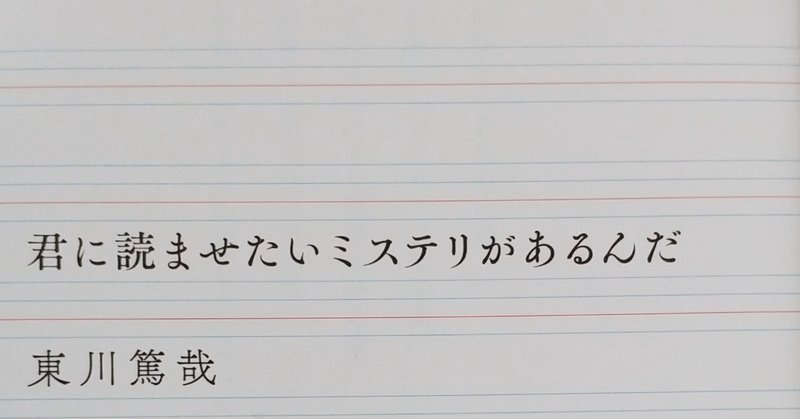 君に読ませたいミステリがあるんだ
東川篤哉